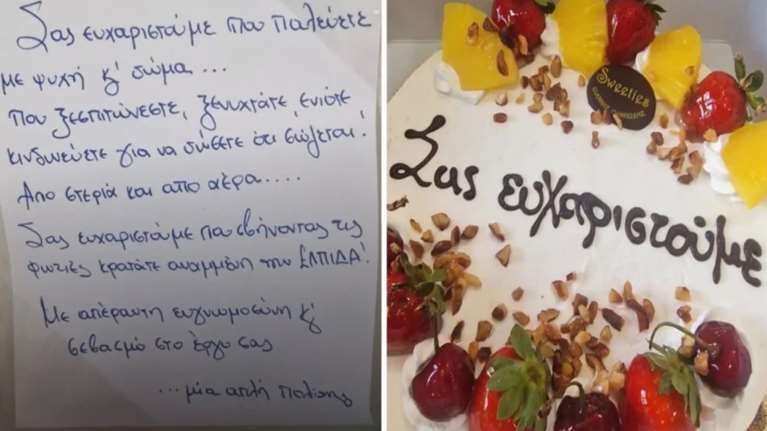 Σας ευχαριστούμε που παλεύετε
με ψυχή κ' σώμα...
που ξεσπιτώνεστε, ξενυχτάτε, ενίοτε
κινδυνεύετε για να σώσετε ότι σώζεται!
Απο στεριά και απο αέρα....
Σας ευχαριστούμε που σβήνοντας τις
φωτιές κρατάτε αναμμένη την ΕΛΠΙΔΑ!
Με απέραντη ευγνωμοσύνη κ'
σεβασμό στο έργο σας
...μία απλή πολίτης
Sweeties
Σας ευχαριστούμε